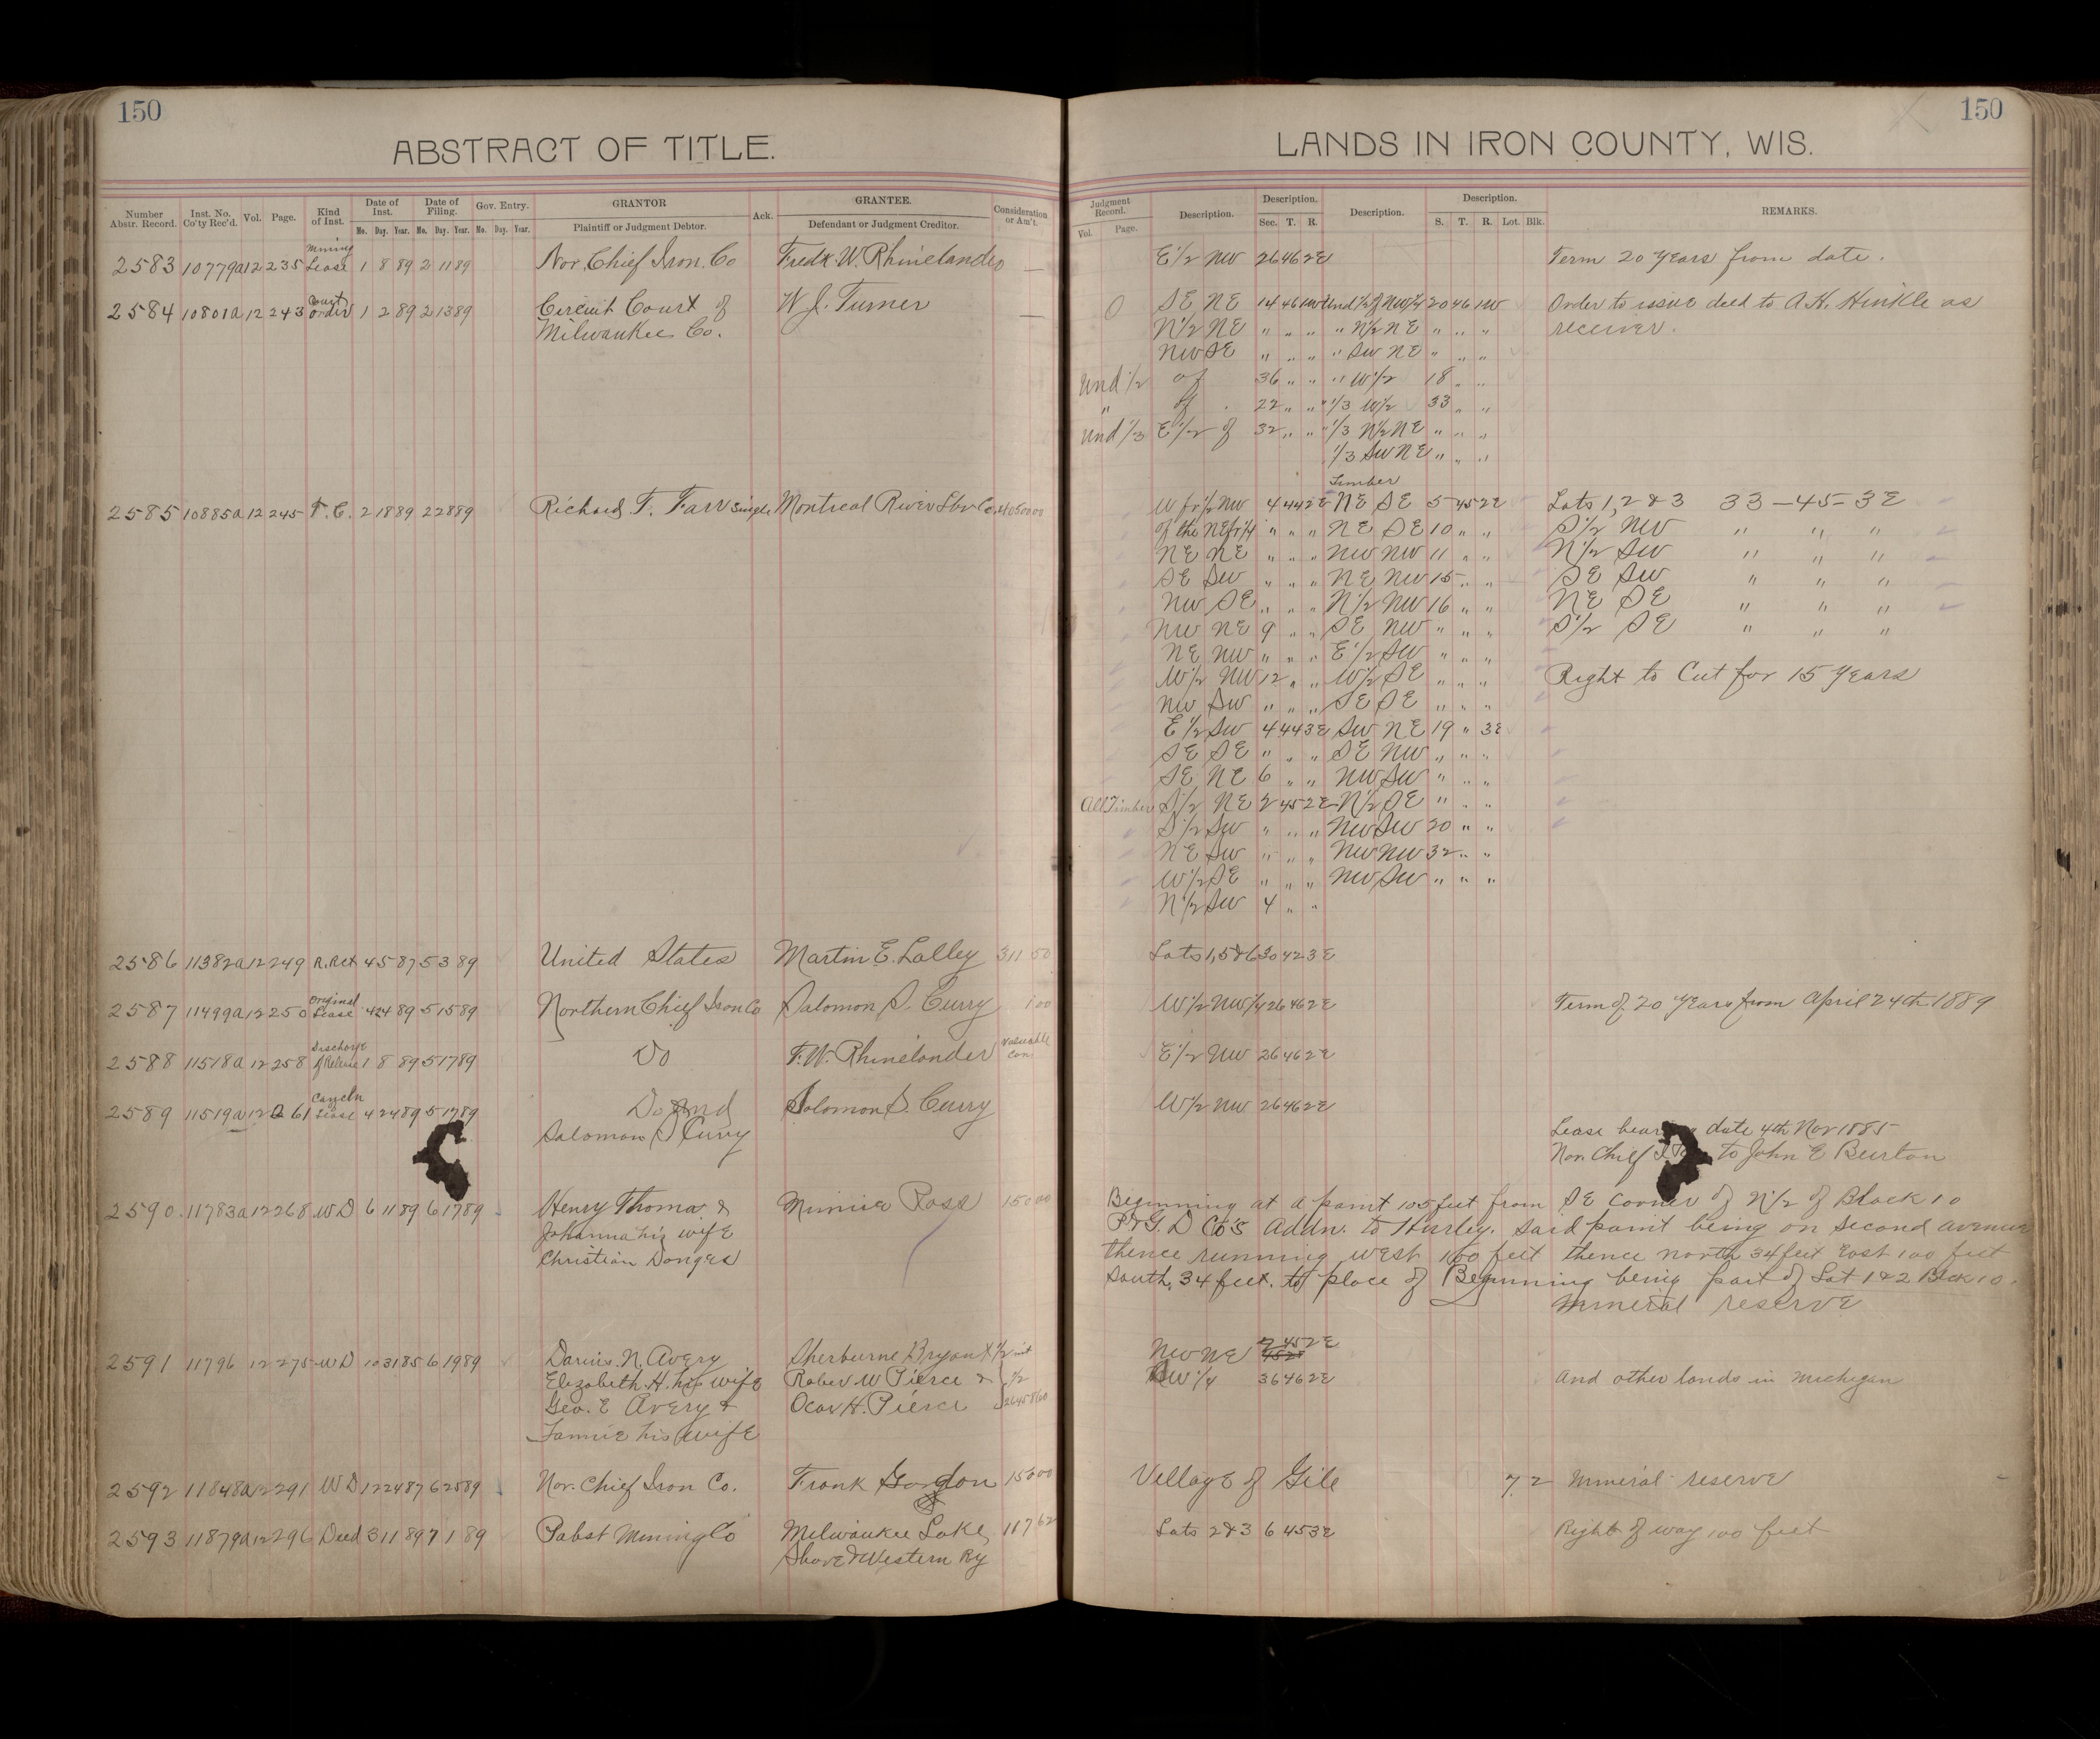 150
150
ABSTRACT OF TITLE.
LANDS IN IRON COUNTY, WIS.
Number Abstr. Record. Inst. No. Co'ty Rec'd. Vol. Page. Kind of Inst. Date of Inst. Mo. Day. Year. Date of Filing. Mo. Day. Year. Gov. Entry. Mo. Day. Year. GRANTOR Plaintiff or Judgment Debtor. Ack. GRANTEE. Defendant or Judgment Creditor. Consideration or Am't.
Judgment Record. Vol. Page. Description. Description. Sec. T. R. Description. Description. S. T. R. Lot. Blk. REMARKS.
2583 10779a 12 235 Mining Lease 1 8 89 2 11 89 Nor. Chief Iron. Co Fredk. W. Rhinelander — E 1/2 NW 26 46 2E Term 20 Years from date.
2584 10801a 12 243 Court order 1 2 89 2 13 89 Circuit Court of W. J. Turner — SE NE 14 46 1W Und 1/2 of NW 1/4 20 46 1W Order to issue deed to A. K. Hinkle as
Milwaukee Co. N 1/2 NE " " " " N 1/2 NE " " " receiver.
NW SE " " " " SW NE " " "
Und 1/2 of 36 " " " W 1/2 18 " "
" of 22 " " " 1/3 W 1/2 33 " "
Und 1/3 E 1/2 of 32 " " " 1/3 N 1/2 NE " " "
1/3 SW NE " " "
Timber
2585 10885a 12 245 T. C. 2 18 89 2 28 89 Richard T. Farr single Montreal River Lbr Co. 4050000 W fr 1/2 NW 4 44 2E NE SE 5 45 2E Lots 1, 2 & 3 33 — 45 — 3E
of the NE fr 1/4 " " " NE SE 10 " " S 1/2 NW " " "
NE NE " " " NW NW 11 " " N 1/2 SW " " "
SE SW " " " NE NW 15 " " SE SW " " "
NW SE " " " N 1/2 NW 16 " " NE SE " " "
NW NE 9 " " SE NW " " " S 1/2 SE " " "
NE NW " " " E 1/2 SW " " "
W 1/2 NW 12 " " W 1/2 SE " " " Right to Cut for 15 Years
NW SW " " " SE SE " " "
E 1/2 SW 4 44 3E SW NE 19 " 3E
SE SE " " " SE NW " " "
SE NE 6 " " NW SW " " "
All Timber S 1/2 NE 2 45 2E N 1/2 SE " " "
S 1/2 SW " " " NW SW 20 " "
NE SW " " " NW NW 32 " "
W 1/2 SE " " " NW SW " " "
N 1/2 SW 4 " "
2586 11382a 12 249 R. Rct 4 5 87 5 3 89 United States Martin E. Lalley 311 50 Lots 1, 5 & 6 30 42 3E
2587 11499a 12 250 Original Lease 4 24 89 5 15 89 Northern Chief Iron Co Salomon S. Curry 1 00 W 1/2 NW 1/4 26 46 2E Term of 20 Years from April 24th 1889
2588 11518a 12 258 Discharge of Release 1 8 89 5 17 89 Do F. W. Rhinelander valuable con E 1/2 NW 26 46 2E
2589 11519a 12 261 Lease 4 24 89 5 17 89 Do And Solomon S. Curry W 1/2 NW 26 46 2E
Salomon S Curry Lease date 4th Nov 1885
Nor. Chief to John E Burton
2590 11783a 12 268 W D 6 11 89 6 17 89 Henry Thoma & Minnie Ross 150 00 Beginning at a point 105 feet from SE corner of N 1/2 of Block 10
Johanna his wife P & G. D Co's Addn. to Hurley. Said point being on Second avenue
Christian Donges thence running west 100 feet thence north 34 feet East 100 feet
South 34 feet. to place of Beginning being part of Lot 1 & 2 Block 10.
Mineral reserve
2591 11796 12 275 W D 10 31 85 6 19 89 Darius. N. Avery Sherburne Bryant 1/2 int NW NE 2 45 2E
Elizabeth. H. his wife Rober W Pierce & 1/2 SW 1/4 36 46 2E And other lands in Michigan
Geo. E Avery & Ocar H. Pierce
Fannie his wife
2592 11848a 12 291 W D 12 24 87 6 25 89 Nor. Chief Iron Co. Frank Gordon 150 00 Village of Gile 7 2 Mineral reserve
2593 11879a 12 296 Deed 3 11 89 7 1 89 Pabst Mining Co Milwaukee Lake 187 62 Lots 2 & 3 6 45 3E Right of way 100 feet
Shore & Western Ry